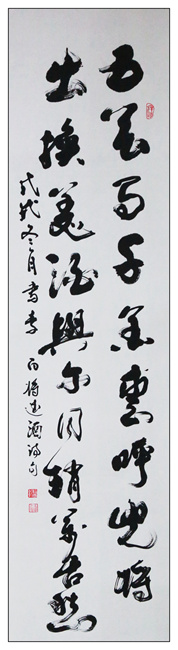 五花马千金裘呼儿将
出换美酒與尔同销萬古愁
戊戌冬月書李白将进酒诗句